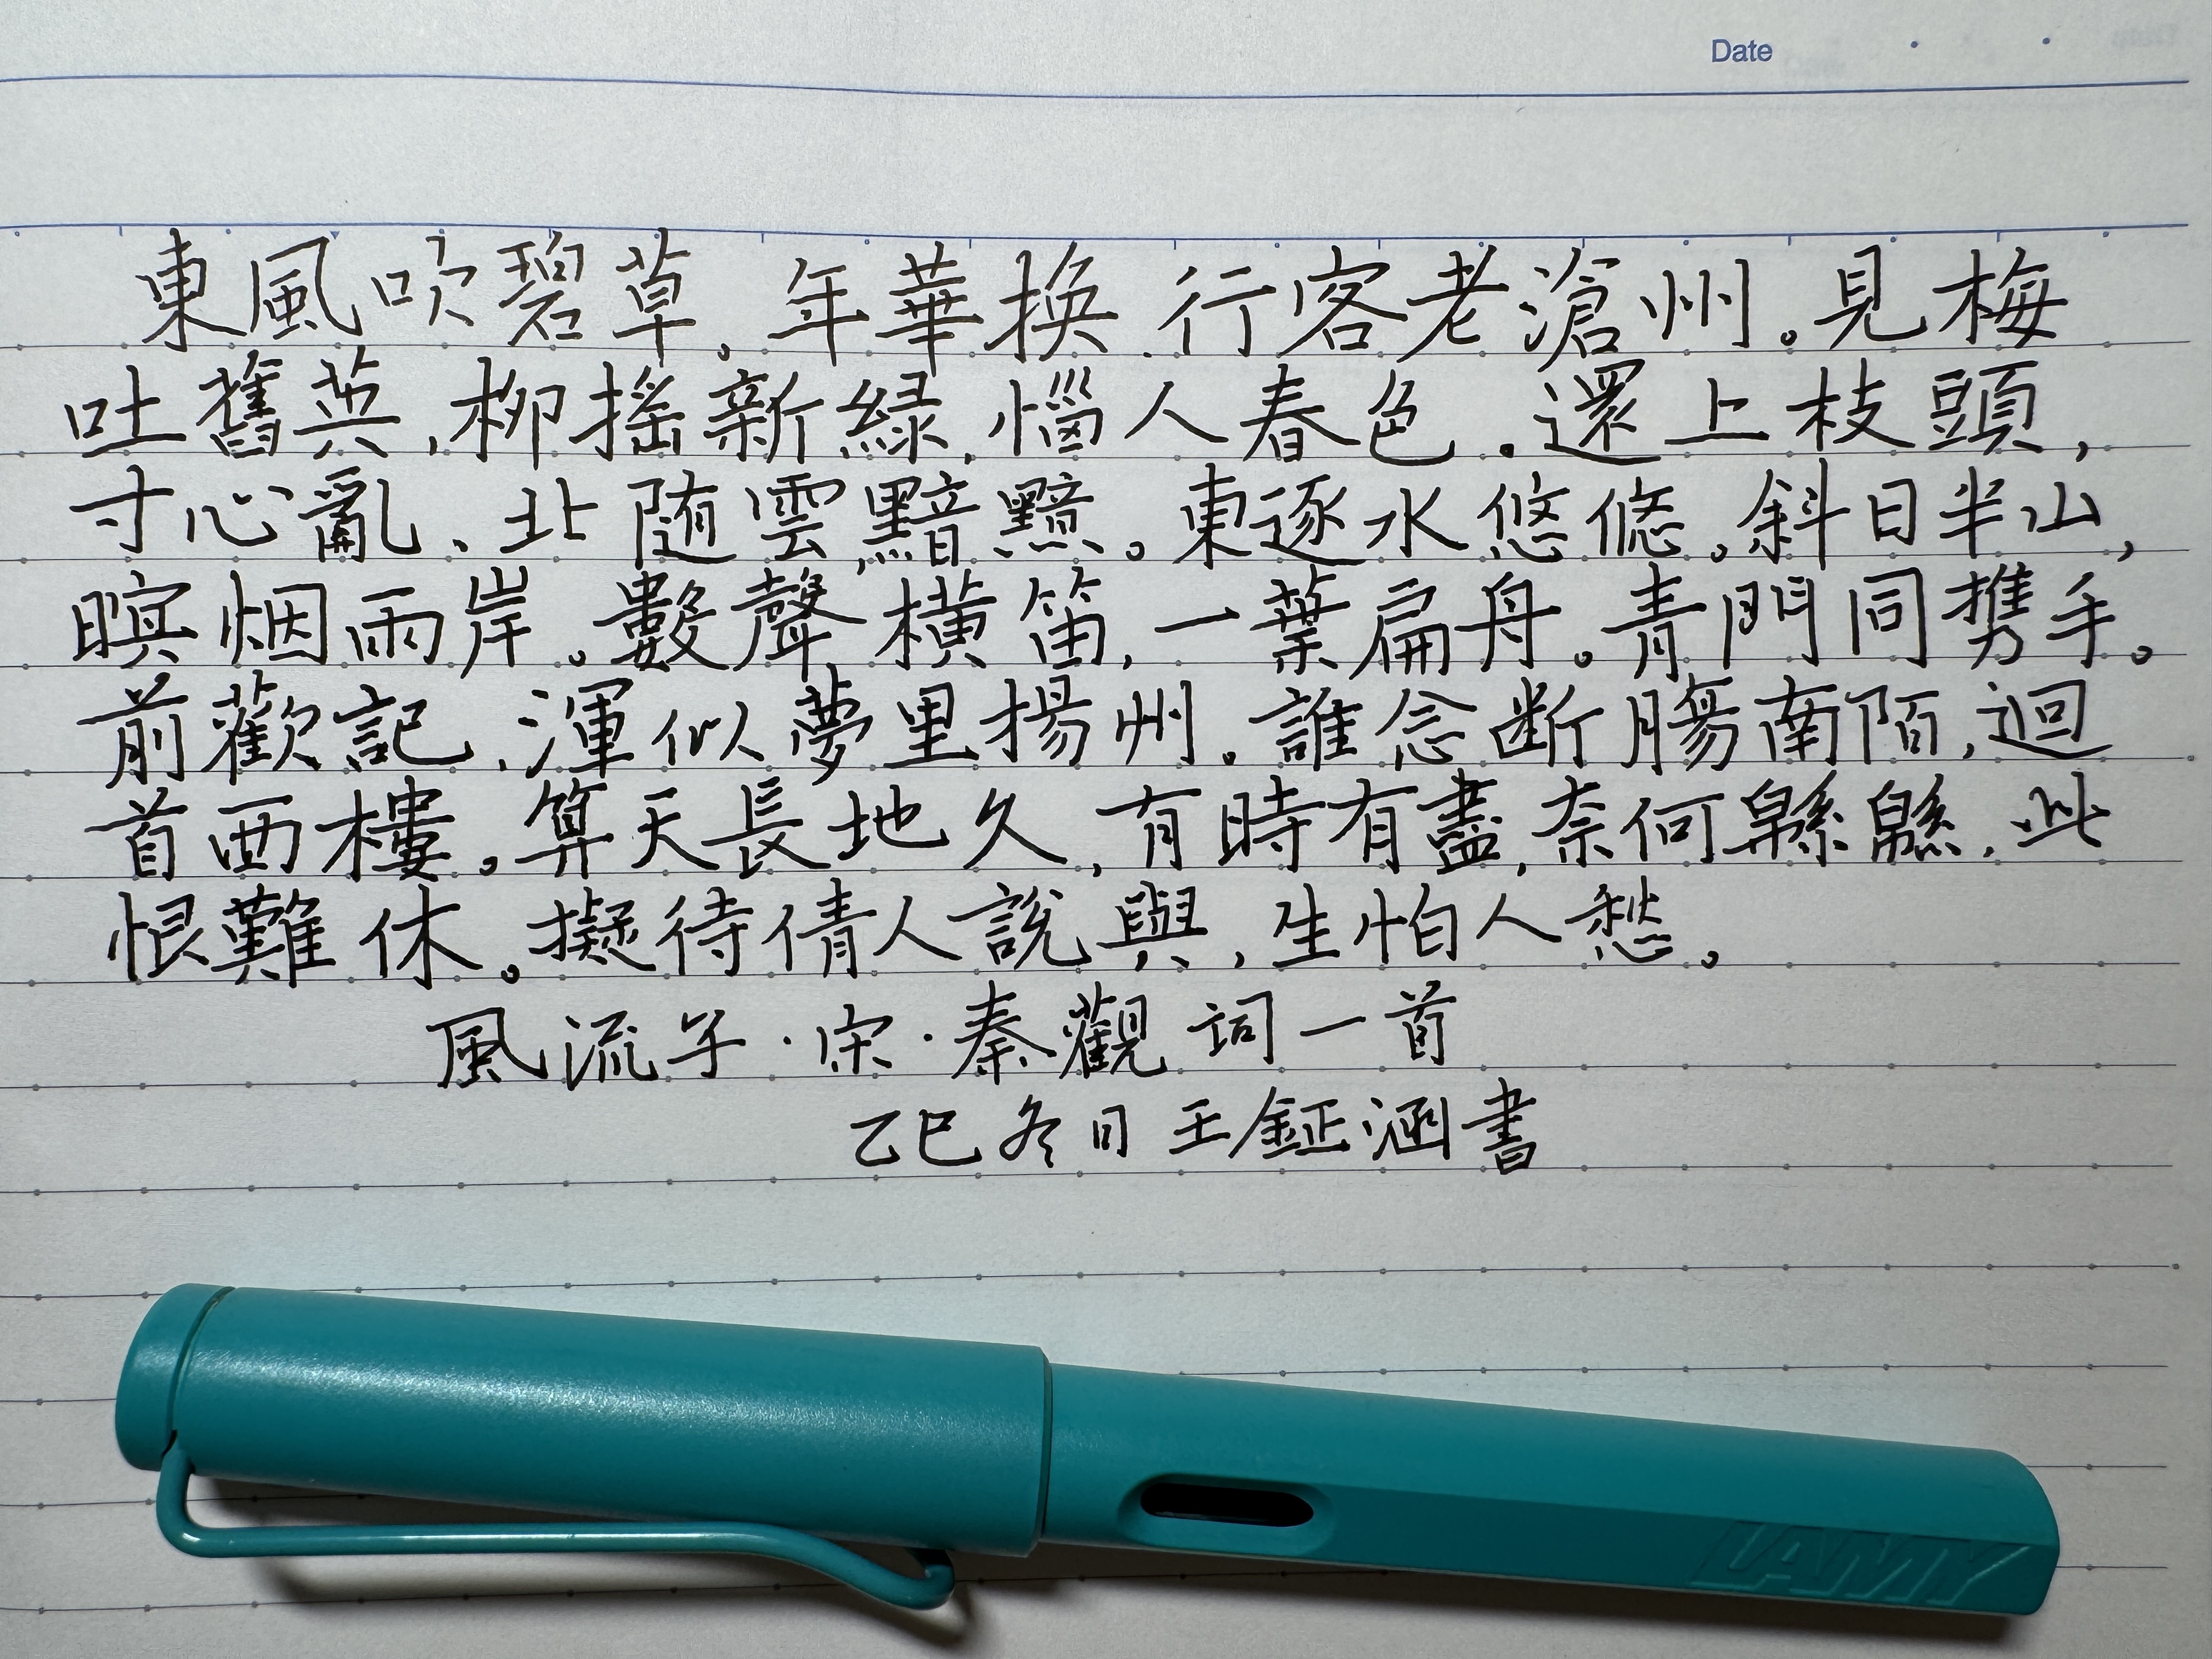 Date
東風吹碧草，年華換，行客老滄州。見梅
吐舊英，柳搖新綠，惱人春色。還上枝頭，
寸心亂、北随雲黯黯。東逐水悠悠。斜日半山，
暝烟雨岸。數聲橫笛，一葉扁舟。青門同携手。
前歡記，渾似夢里揚州。誰念断腸南陌，迴
首西樓。算天長地久，有時有盡，奈何緜緜，此
恨難休。擬待倩人説與，生怕人愁。
風流子·宋·秦觀詞一首
乙巳冬日王鉦涵書
LAMY